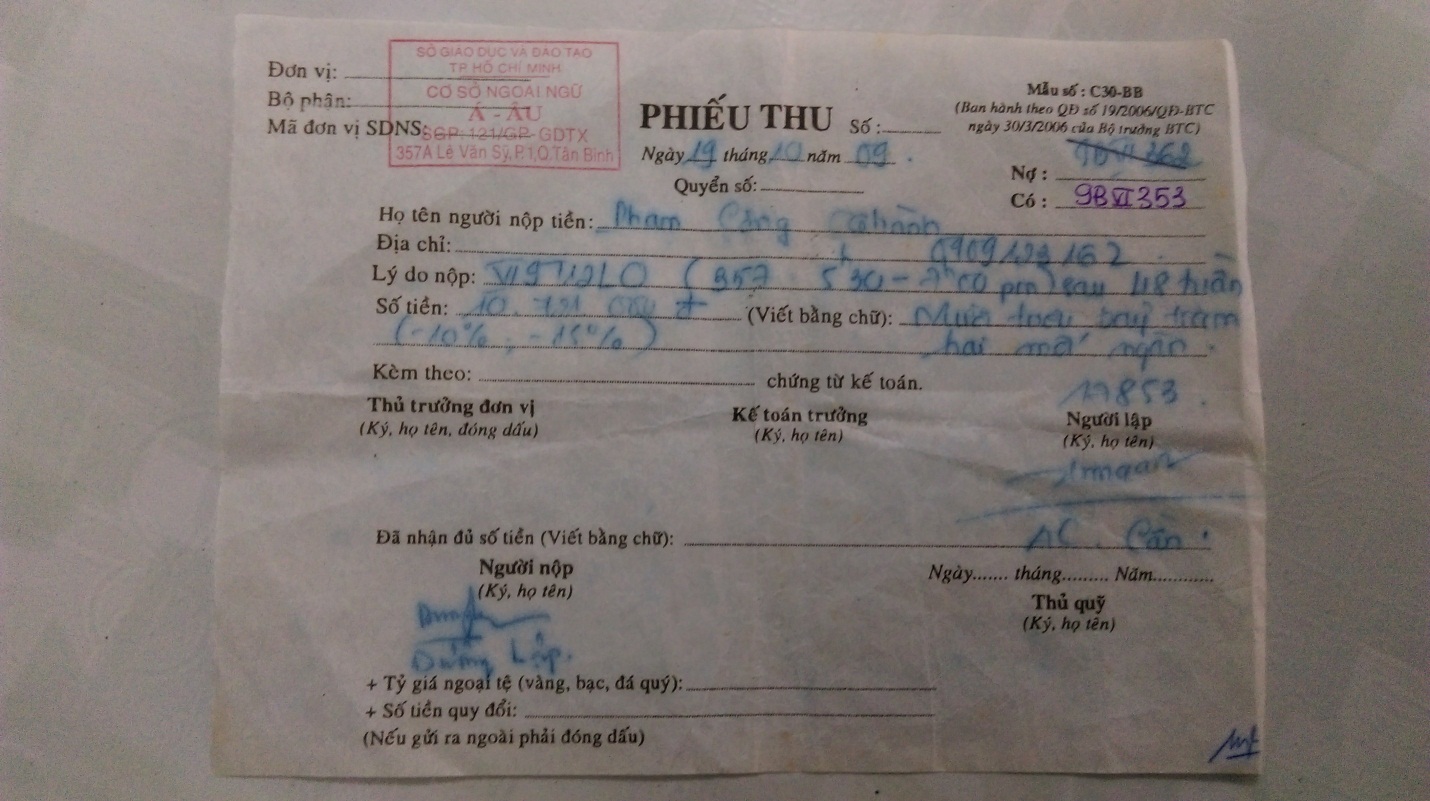 SỞ GIÁO DỤC VÀ ĐÀO TẠO
TP. HỒ CHÍ MINH
CƠ SỞ NGOẠI NGỮ
Á - ÂU
SGP: 121/GP- GDTX
357A Lê Văn Sỹ, P.1, Q.Tân Bình
Đơn vị:
Bộ phận:
Mã đơn vị SDNS:
PHIẾU THU Số :
Ngày 19 tháng 10 năm 09 .
Quyển số:
Mẫu số : C30-BB
(Ban hành theo QĐ số 19/2006/QĐ-BTC
ngày 30/3/2006 của Bộ trưởng BTC)
Nợ : 9BVI 362
Có : 9BVI353
Họ tên người nộp tiền: Phạm Công
Địa chỉ: 0909123162
Lý do nộp: (357 530 - 7h00 pm) sau 48 tuần
Số tiền: (Viết bằng chữ): Mười triệu bảy trăm
(-10% , -15%) hai mốt ngàn .
Kèm theo: chứng từ kế toán.
17853 .
Thủ trưởng đơn vị Kế toán trưởng Người lập
(Ký, họ tên, đóng dấu) (Ký, họ tên) (Ký, họ tên)
Đã nhận đủ số tiền (Viết bằng chữ):
Người nộp Ngày....... tháng......... Năm............
(Ký, họ tên) Thủ quỹ
(Ký, họ tên)
+ Tỷ giá ngoại tệ (vàng, bạc, đá quý):
+ Số tiền quy đổi:
(Nếu gửi ra ngoài phải đóng dấu)